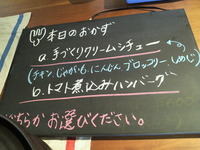 本日のおかず
a. 手づくりクリームシチュー
(チキン、じゃがいも、にんじん、ブロッコリー、しめじ)
b. トマト煮込みハンバーグ
どちらか お選びください。